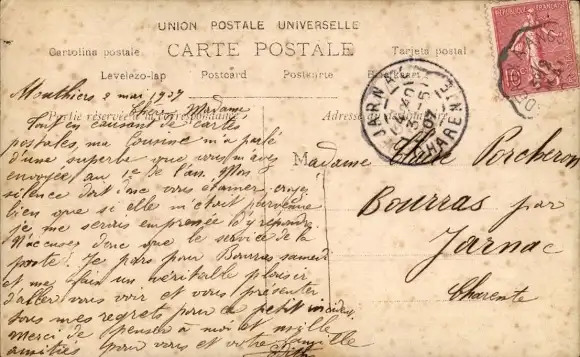 UNION POSTALE UNIVERSELLE
CARTE POSTALE
Cartolina postale
Tarjeta postal
Levelezo-lap Postcard Postkarte
Partie réservée à la Adresse du
M
RÉPUBLIQUE FRANÇAISE
10
JARNAC
CHARENTE
3 -5
07
Mouthiers 2 mai 1907
Chère Madame
Tout en causant de cartes
postales, ma cousine m'a parlé
d'une superbe que vous m'avez
envoyée au 1er de l'an. Mon
silence doit donc vous étonner, croyez
bien que si elle m'était parvenue
je me serais empressée d'y répondre
N'accusez donc que le service de la
poste! Je pars pour Bourras samedi
et me fais un véritable plaisir
d'aller vous voir et vous présenter
tous mes regrets pour ce petit incident.
Merci de penser à moi et mille
amitiés pour vous et votre famille
Madame Porcheron
Bourras par
Jarnac
Charente